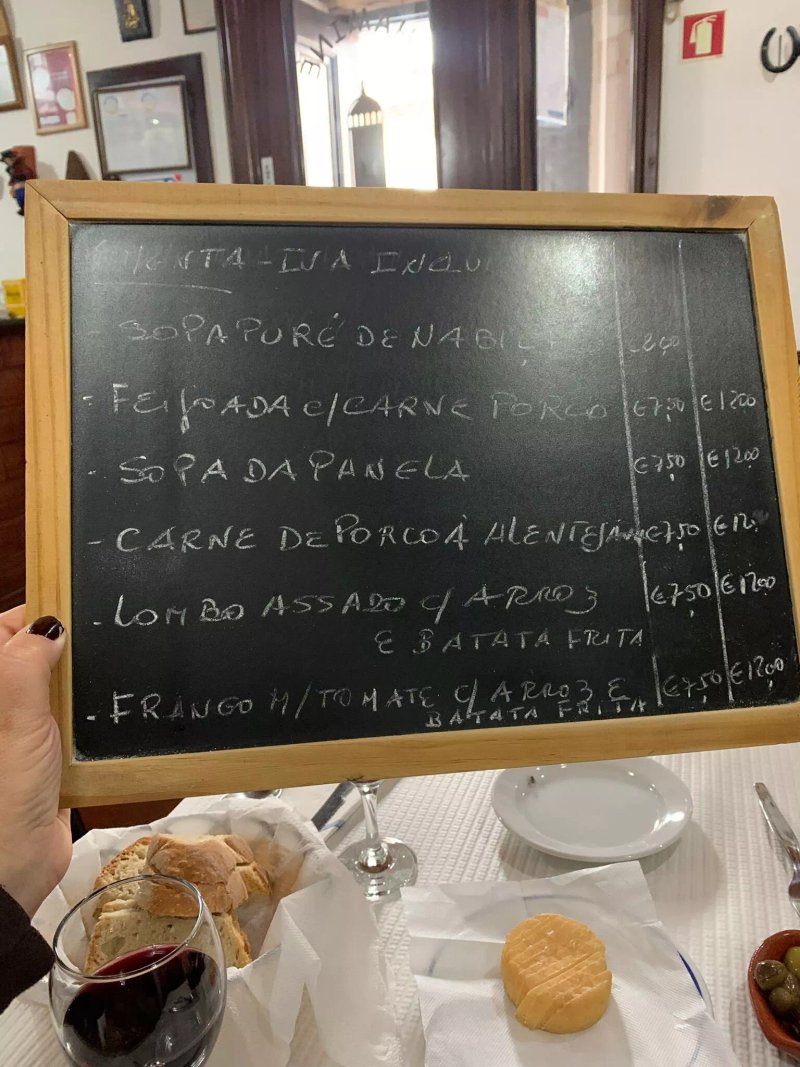 EMENTA - IVA INCLU
- SOPA PURÉ DE NABIÇ
- FEIJOADA C/CARNE PORCO €7,50 €12,00
- SOPA DA PANELA €7,50 €12,00
- CARNE DE PORCO À ALENTEJANA €7,50
- LOMBO ASSADO C/ ARROZ €7,50 €12,00
E BATATA FRITA
- FRANGO M/TOMATE C/ ARROZ E €7,50 €12,00
BATATA FRITA